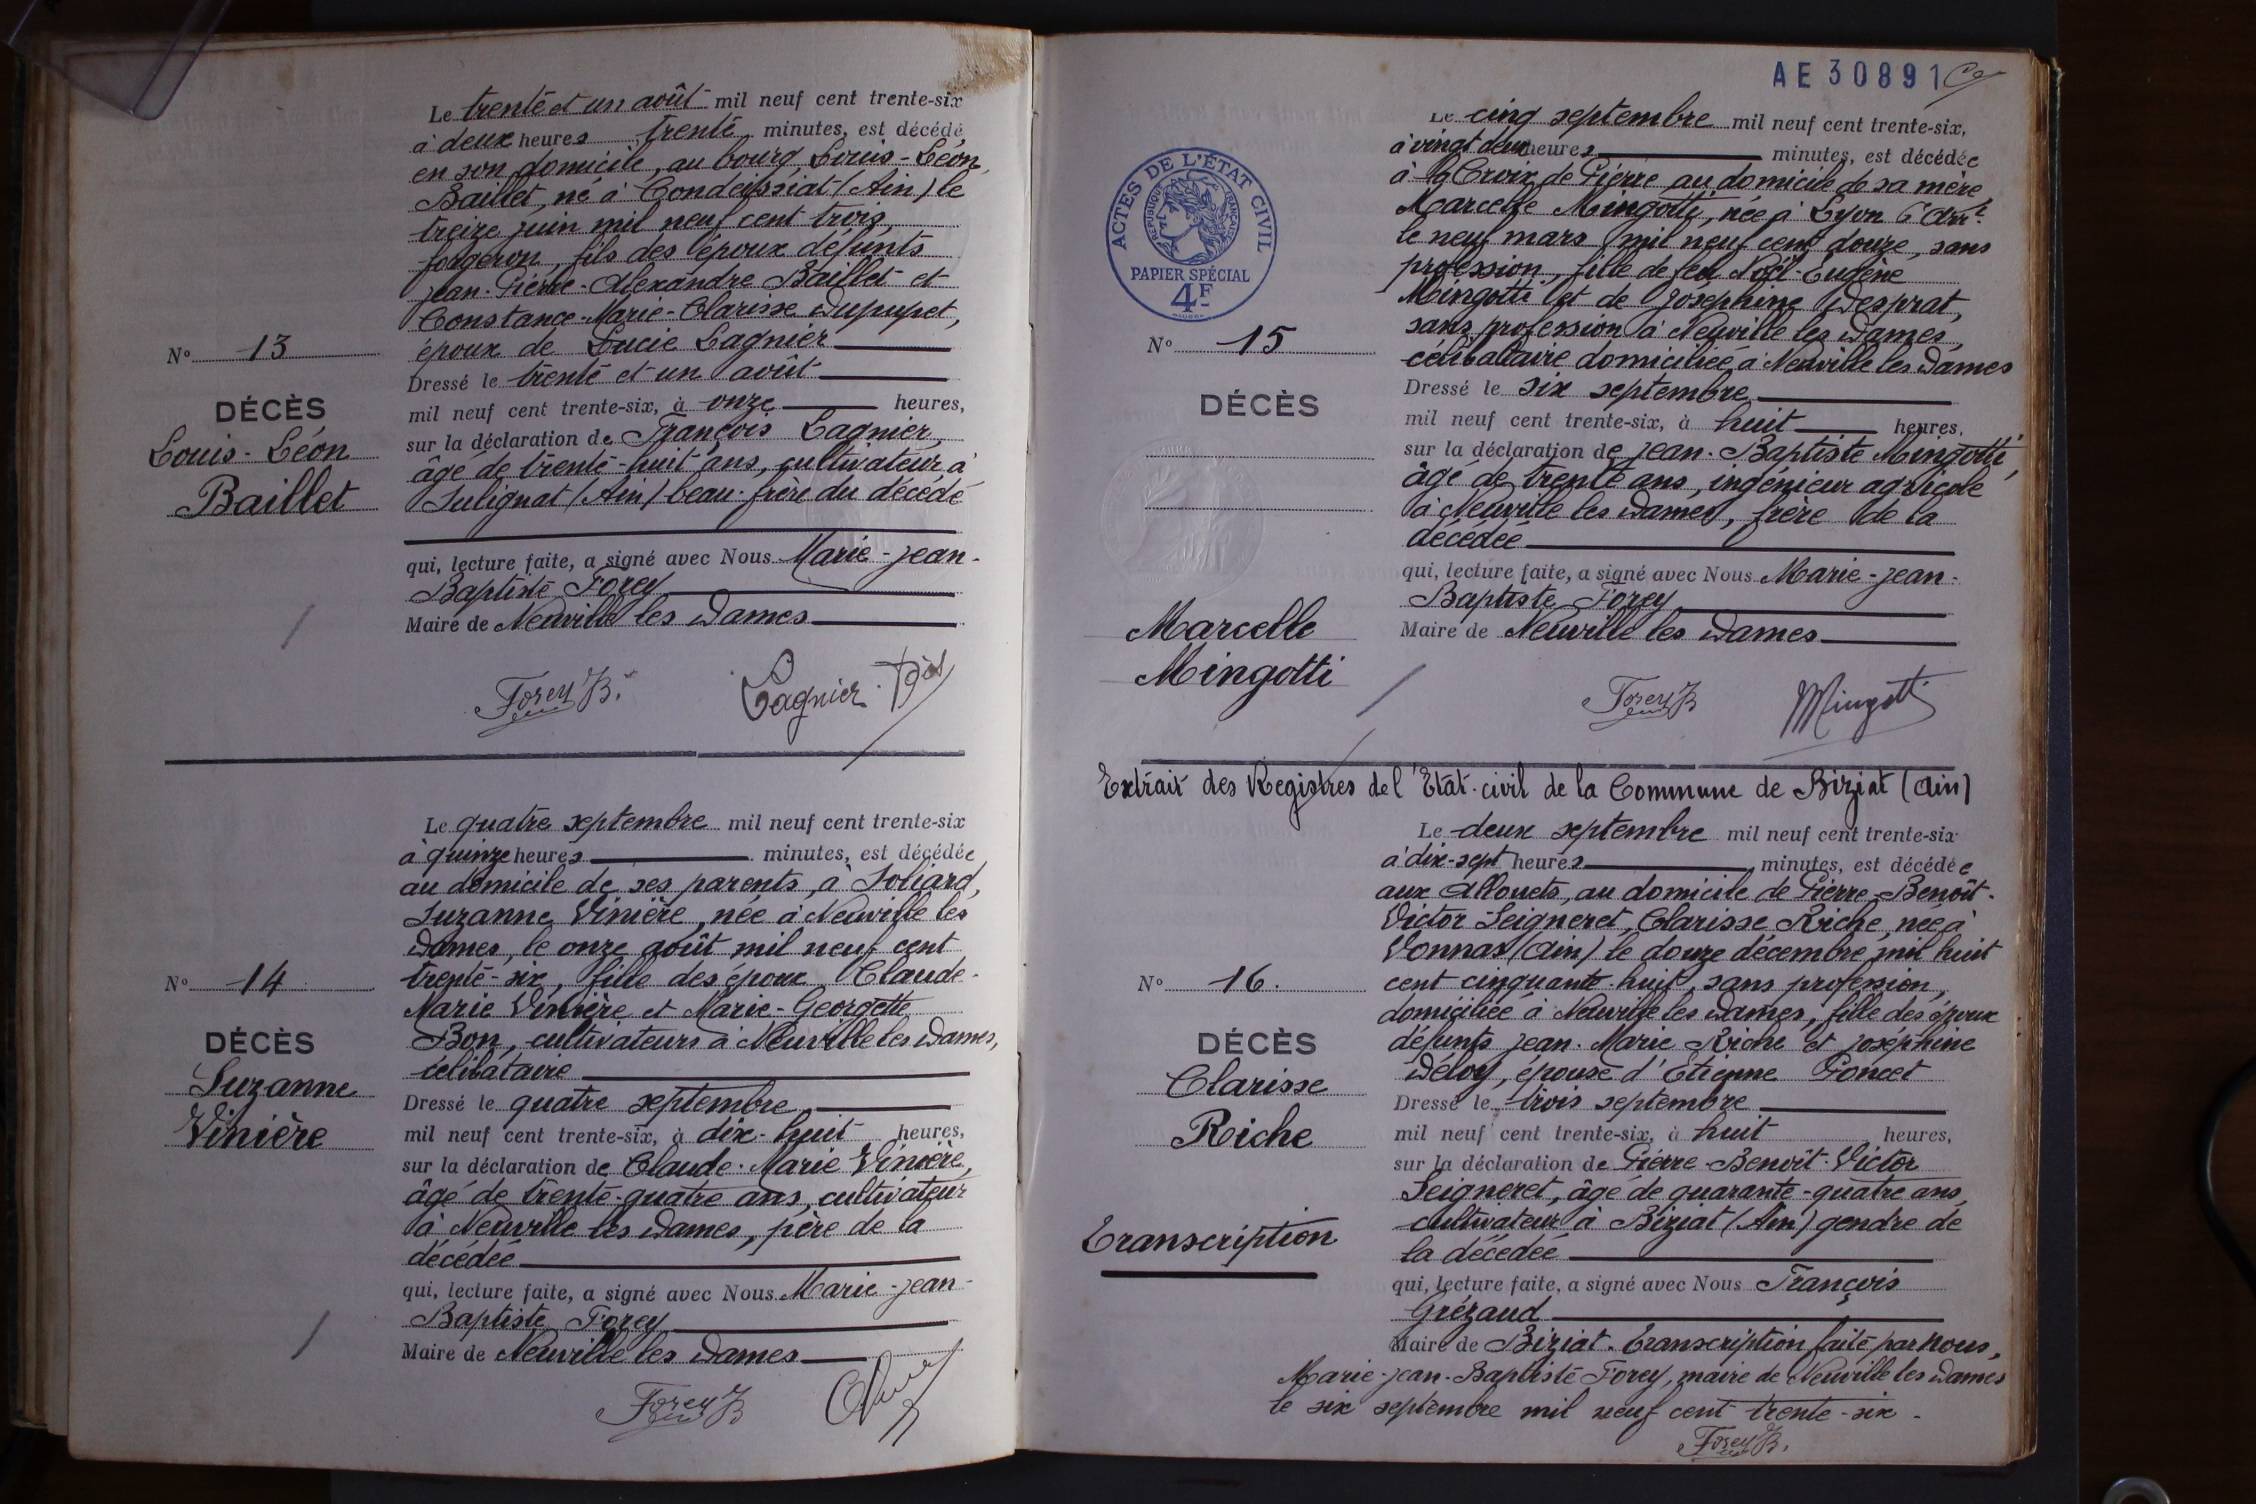 Le trente et un août mil neuf cent trente-six
à deux heures trente minutes, est décédé
en son domicile, au bourg, Louis-Léon
Baillet, né à Condeissiat (Ain) le
treize juin mil neuf cent trois,
forgeron, fils des époux défunts
Jean-Pierre-Alexandre Baillet et
Constance-Marie-Clarisse Dupupet,
époux de Lucie Lagnier
N° 13
Dressé le trente et un août
DÉCÈS
mil neuf cent trente-six, à onze heures,
Louis-Léon
Baillet
sur la déclaration de François Lagnier,
âgé de trente-huit ans, cultivateur à
Sulignat (Ain) beau-frère du décédé
qui, lecture faite, a signé avec Nous Marie-Jean-
Baptiste Forey
Maire de Neuville les Dames
Forey B.
Lagnier Fçois
Le quatre septembre mil neuf cent trente-six
à quinze heures minutes, est décédée
au domicile de ses parents, à Soliard,
Suzanne Vinière, née à Neuville les
Dames, le onze août mil neuf cent
trente-six, fille des époux Claude-
Marie Vinière et Marie-Georgette
Bon, cultivateurs à Neuville les Dames,
célibataire
N° 14
DÉCÈS
Suzanne
Vinière
Dressé le quatre septembre
mil neuf cent trente-six, à dix-huit heures,
sur la déclaration de Claude-Marie Vinière,
âgé de trente-quatre ans, cultivateur
à Neuville les Dames, père de la
décédée
qui, lecture faite, a signé avec Nous Marie-Jean-
Baptiste Forey
Maire de Neuville les Dames
Forey B
AE 30891
ACTES DE L'ÉTAT CIVIL
RÉPUBLIQUE FRANÇAISE
PAPIER SPÉCIAL
4F
Le cinq septembre mil neuf cent trente-six,
à vingt deux heures minutes, est décédée
à la Croix de Pierre au domicile de sa mère,
Marcelle Mingotti, née à Lyon 6e Arrt
le neuf mars mil neuf cent douze, sans
profession, fille de feu Noël-Eugène
Mingotti et de Joséphine Desprat,
sans profession à Neuville les Dames,
célibataire domiciliée à Neuville les Dames
N° 15
DÉCÈS
Marcelle
Mingotti
Dressé le six septembre
mil neuf cent trente-six, à huit heures,
sur la déclaration de Jean-Baptiste Mingotti,
âgé de trente ans, ingénieur agricole
à Neuville les Dames, frère de la
décédée
qui, lecture faite, a signé avec Nous Marie-Jean-
Baptiste Forey
Maire de Neuville les Dames
Forey B
Mingotti
Extrait des Registres de l'Etat-civil de la Commune de Biziat (Ain)
Le deux septembre mil neuf cent trente-six
à dix-sept heures minutes, est décédée
aux Allouets, au domicile de Pierre-Benoît-
Victor Seigneret, Clarisse Riche, née à
Vonnas (Ain) le douze décembre mil huit
cent cinquante-huit, sans profession,
domiciliée à Neuville les Dames, fille des époux
défunts Jean-Marie Riche et Joséphine
Déloy, épouse d'Etienne Poncet
N° 16.
DÉCÈS
Clarisse
Riche
Transcription
Dressé le trois septembre
mil neuf cent trente-six, à huit heures,
sur la déclaration de Pierre-Benoît-Victor
Seigneret, âgé de quarante-quatre ans,
cultivateur à Biziat (Ain) gendre de
la décédée
qui, lecture faite, a signé avec Nous François
Grézaud
Maire de Biziat. Transcription faite par nous,
Marie-Jean-Baptiste Forey, maire de Neuville les Dames
le six septembre mil neuf cent trente-six.
Forey B.